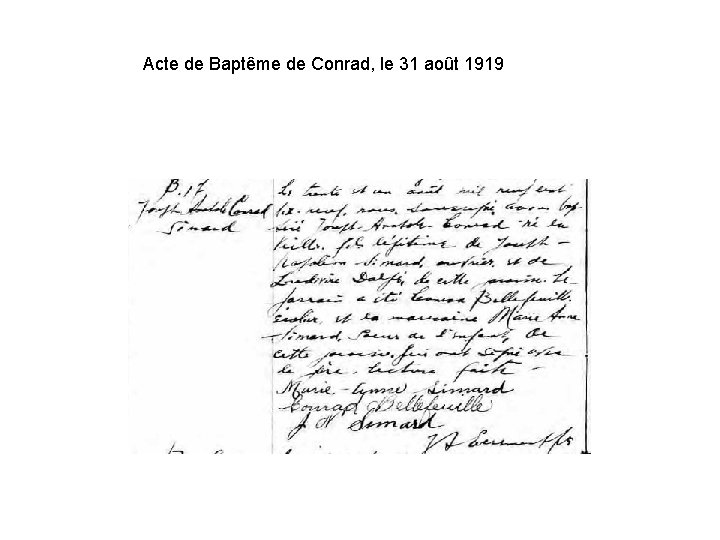 Acte de Baptême de Conrad, le 31 août 1919
B.17
Joseph Anatole Conrad
Simard
Le trente et un Août mil neuf cent
dix-neuf, nous, soussigné, avons bap
tisé Joseph Anatole Conrad né la
veille, fils légitime de Joseph
Napoléon Simard, ouvrier, et de
de cette paroisse. Le
parrain a été Conrad Bellefeuille,
écolier, et la marraine Marie Anne
Simard, soeur de l'enfant, de
cette paroisse, qui ont signé avec
le père. Lecture faite
Marie-Anne Simard
Conrad Bellefeuille
J N Simard